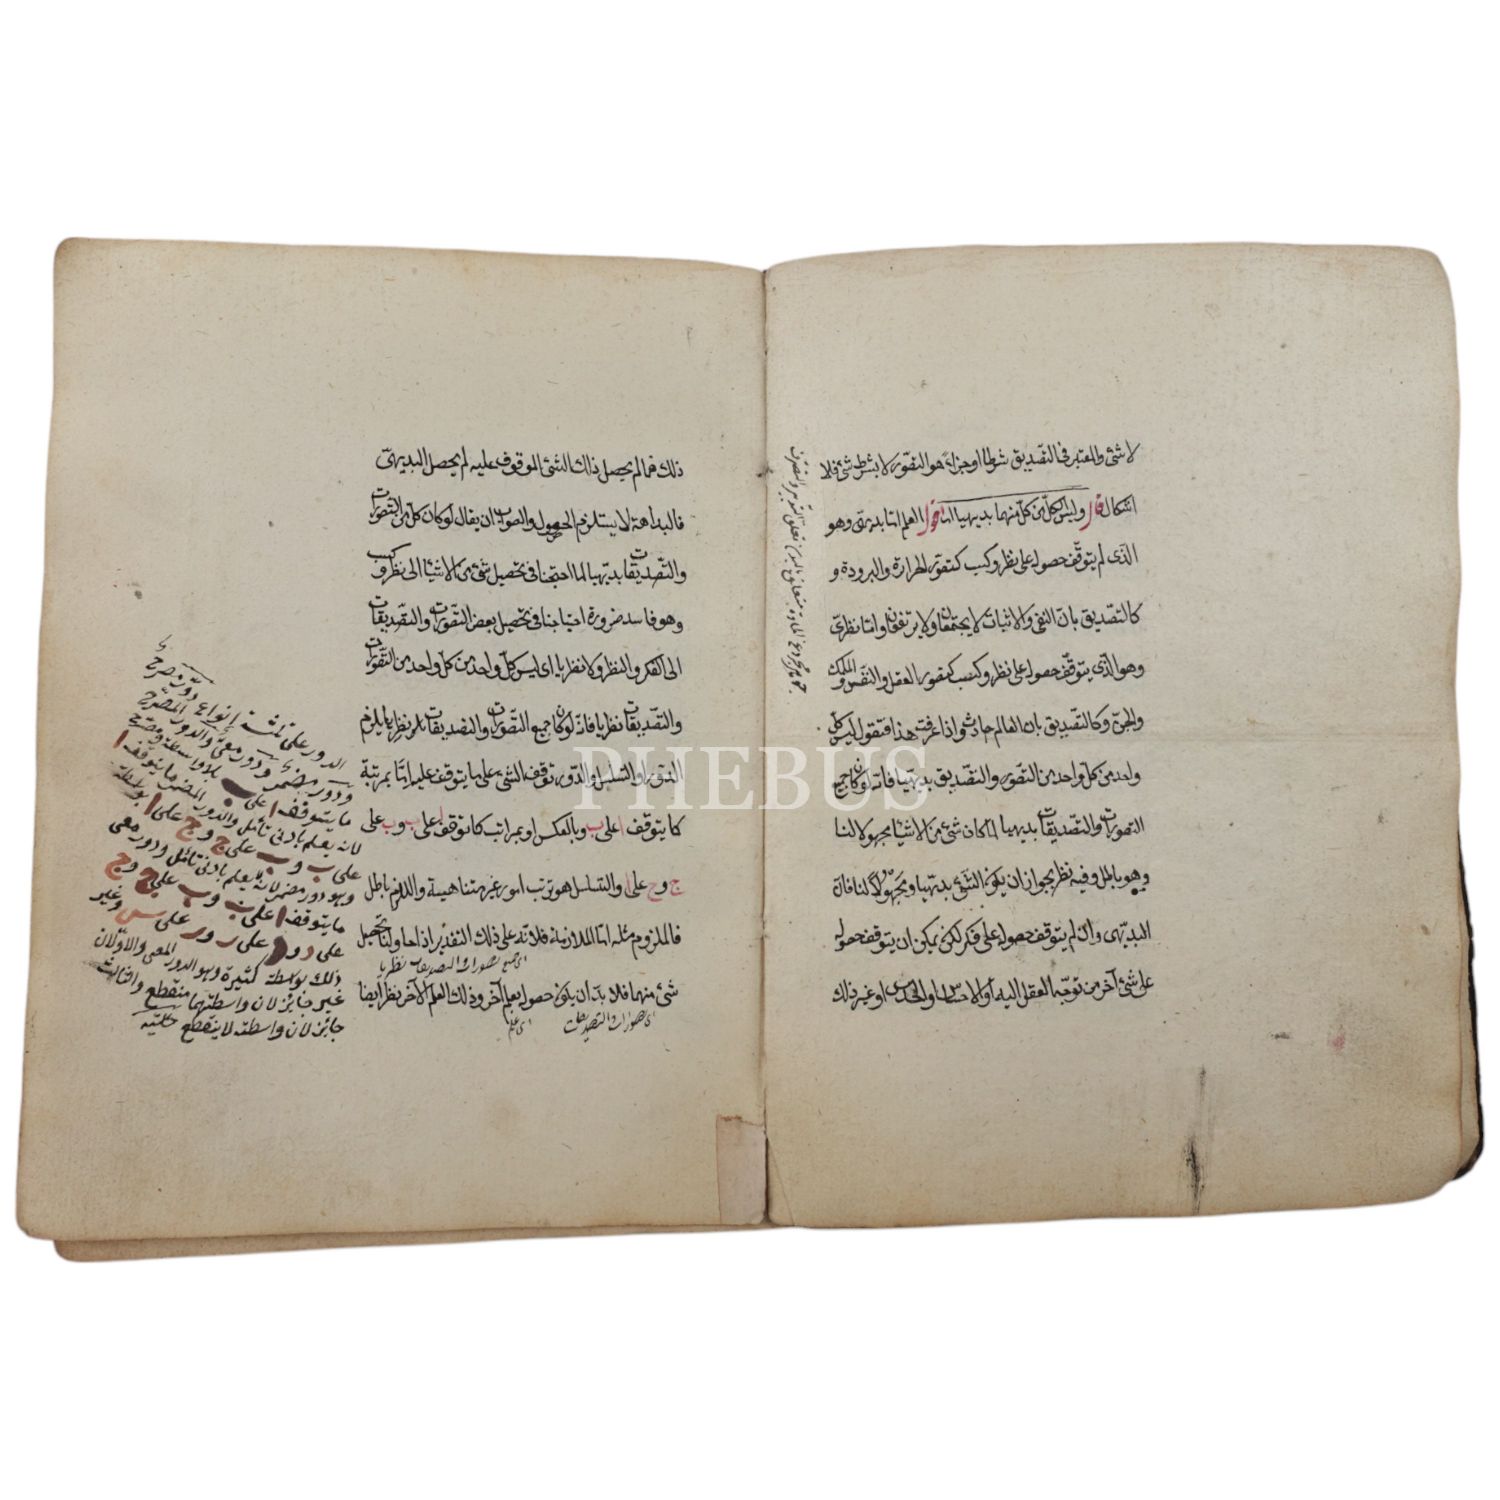 لا شئ والمعتبر فى التصديق شرطا او جزاء هو التصور لا بشرط شئ فلا
اشكال قال وليس الكل من كل منهما بديهيا اقول العلم اما بديهى وهو
الذى لم يتوقف حصوله على نظر وكسب كتصور الحرارة والبرودة و
كالتصديق بان النفى والاثبات لا يجتمعان ولا يرتفعان واما نظرى
وهو الذى يتوقف حصوله على نظر وكسب كتصور العقل والنفس والملك
والجن وكالتصديق بان العالم حادث واذا عرفت هذا فنقول ليس كل
واحد من كل واحد من التصور والتصديق بديهيا فانه لو كان جميع
التصورات والتصديقات بديهيا لما كان شئ من الاشياء مجهولا لنا
وهو باطل وفيه نظر لجواز ان يكون الشئ بديهيا ومجهولا لنا فان
البديهى وان لم يتوقف حصوله على فكر لكن يمكن ان يتوقف حصوله
على شئ آخر من توجه العقل اليه او الاحساس او الحدس او غير ذلك
ذلك فمالم يحصل ذلك الشئ الموقوف عليه لم يحصل البديهى
فالبداهة لا يستلزم الحصول والصواب ان يقال لو كان كل من التصورات
والتصديقات بديهيا لما احتجنا فى تحصيل شئ من الاشياء الى نظر وكسب
وهو فاسد ضرورة احتياجنا فى تحصيل بعض التصورات والتصديقات
الى الفكر والنظر ولا نظريا اى ليس كل واحد من كل واحد من التصورات
والتصديقات نظريا فانه لو كان جميع التصورات والتصديقات نظريا يلزم
الدور والتسلسل والدور توقف الشئ على ما يتوقف عليه اما بمرتبة
كما يتوقف ا على ب وبالعكس او بمراتب كما توقف ا على ب وب على
ج وج على ا والتسلسل هو ترتب امور غير متناهية واللازم باطل
فالملزوم مثله اما الملازمة فلانه على ذلك التقدير اذا حاولنا تحصيل
اى جميع تصورات والتصديقات نظريا
شئ منهما فلا بد ان يكون حصوله بعلم آخر وذلك العلم الآخر نظر ايضا
اى تصورات والتصديقات اى علم
الدور على ثلثة انواع دور مصرح
ودور مضمر ودور معى والدور المصرح
ما يتوقف ا على ب بلا واسطة
لانه يعلم بادنى تأمل والدور المضمر ما يتوقف ا
على ب وب على ج وج على ا بواسطة
وهو دور مضمر لانه لا يعلم بادنى تأمل ودور معى
ما يتوقف ا على ب وب على ج وج
على د ود على ر ور على س وغير
ذلك بواسطة كثيرة وهو الدور المعى والاولان
غير جائز لان واسطتهما منقطع والثالث
جائز لان واسطته لا ينقطع
PHEBUS